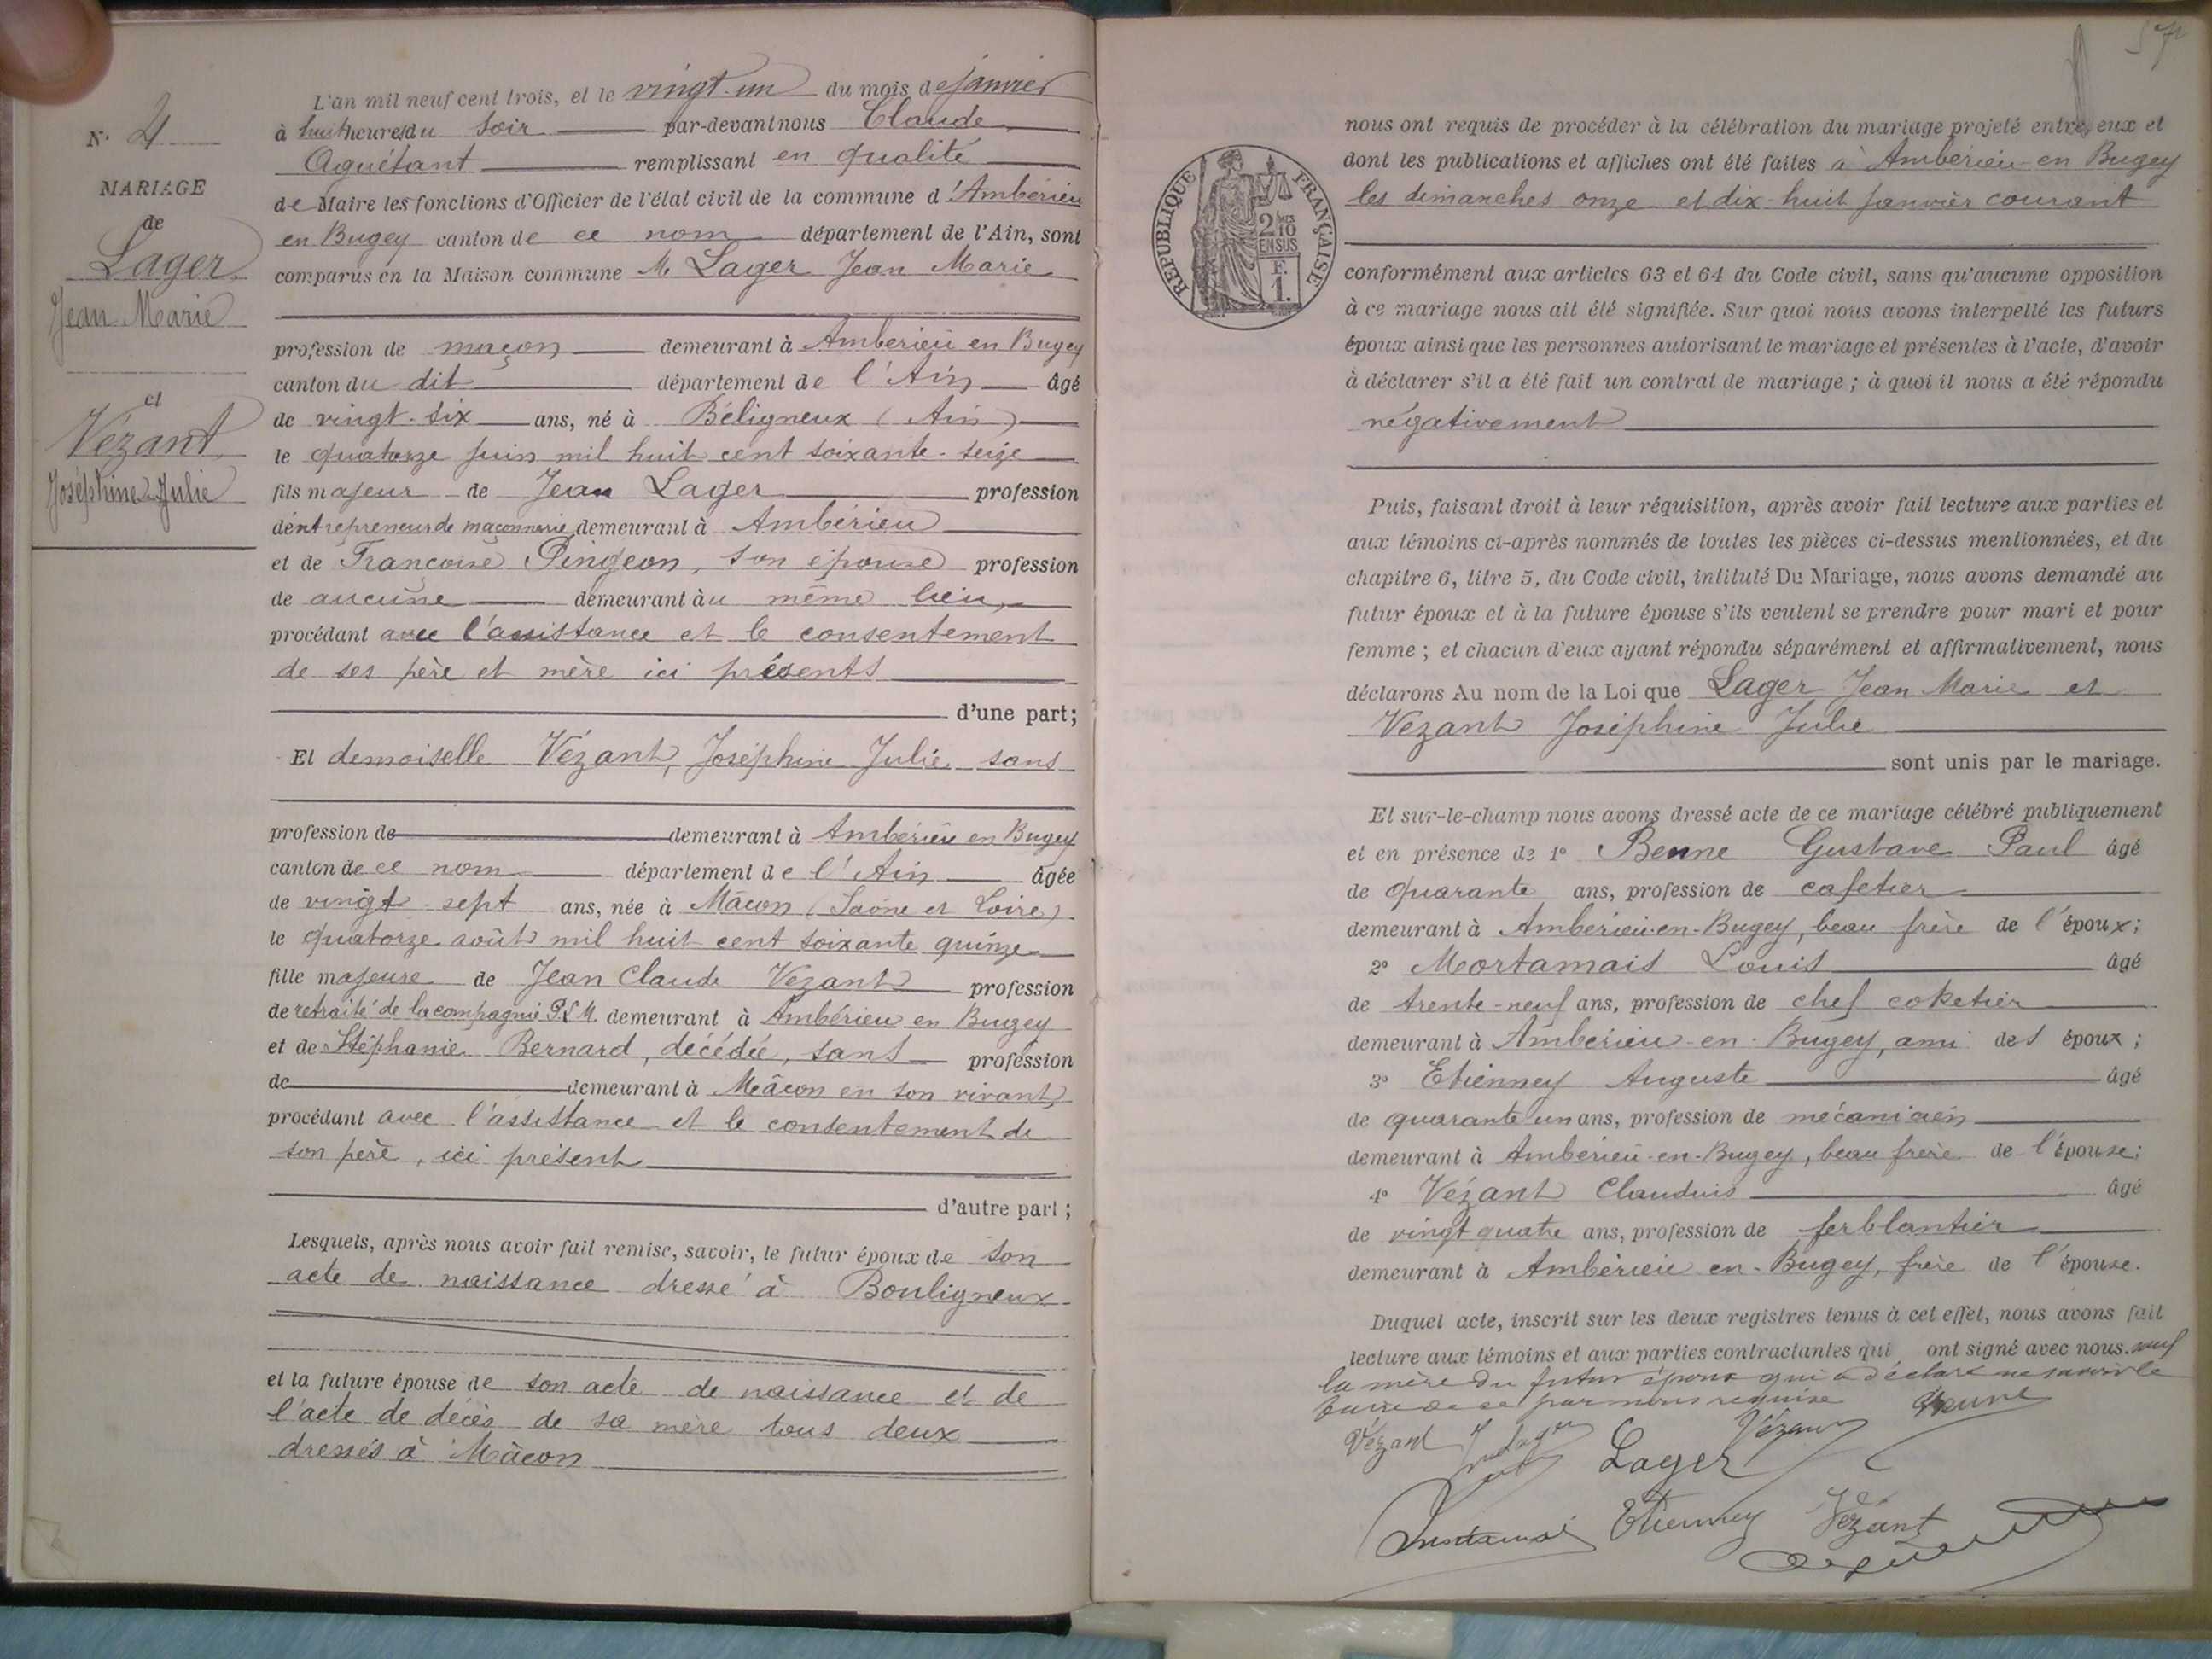 L'an mil neuf cent trois, et le vingt-un du mois de janvier
N° 4
à huit heures du soir par-devant nous Claude
Aguétant remplissant en qualité
MARIAGE
de Maire les fonctions d'Officier de l'état civil de la commune d'Ambérieu
de
Lager
Jean Marie
et
Vézant
Joséphine Julie
en Bugey canton de ce nom département de l'Ain, sont
comparus en la Maison commune M. Lager Jean Marie
profession de maçon demeurant à Ambérieu en Bugey
canton du dit département de l'Ain âgé
de vingt-six ans, né à Béligneux (Ain)
le quatorze juin mil huit cent soixante-seize
fils majeur de Jean Lager profession
d'entrepreneur de maçonnerie demeurant à Ambérieu
et de Françoise Pingeon, son épouse profession
de aucune demeurant au même lieu,
procédant avec l'assistance et le consentement
de ses père et mère ici présents
d'une part;
Et demoiselle Vézant, Joséphine Julie, sans
profession de demeurant à Ambérieu en Bugey
canton de ce nom département de l'Ain âgée
de vingt-sept ans, née à Mâcon (Saône et Loire)
le quatorze août mil huit cent soixante quinze
fille majeure de Jean Claude Vezant profession
de retraité de la compagnie P.L.M. demeurant à Ambérieu en Bugey
et de Stéphanie Bernard, décédée, sans profession
de demeurant à Mâcon en son vivant,
procédant avec l'assistance et le consentement de
son père, ici présent
d'autre part;
Lesquels, après nous avoir fait remise, savoir, le futur époux de son
acte de naissance dressé à Bouligneux
et la future épouse de son acte de naissance et de
l'acte de décès de sa mère tous deux
dressés à Mâcon
57
nous ont requis de procéder à la célébration du mariage projeté entre eux et
dont les publications et affiches ont été faites à Ambérieu-en Bugey
les dimanches onze et dix-huit janvier courant
RÉPUBLIQUE FRANÇAISE
2/10
EN SUS
F.
1.
conformément aux articles 63 et 64 du Code civil, sans qu'aucune opposition
à ce mariage nous ait été signifiée. Sur quoi nous avons interpellé les futurs
époux ainsi que les personnes autorisant le mariage et présentes à l'acte, d'avoir
à déclarer s'il a été fait un contrat de mariage ; à quoi il nous a été répondu
négativement
Puis, faisant droit à leur réquisition, après avoir fait lecture aux parties et
aux témoins ci-après nommés de toutes les pièces ci-dessus mentionnées, et du
chapitre 6, titre 5, du Code civil, intitulé Du Mariage, nous avons demandé au
futur époux et à la future épouse s'ils veulent se prendre pour mari et pour
femme ; et chacun d'eux ayant répondu séparément et affirmativement, nous
déclarons Au nom de la Loi que Lager Jean Marie et
Vezant Joséphine Julie
sont unis par le mariage.
Et sur-le-champ nous avons dressé acte de ce mariage célébré publiquement
et en présence de 1° Benne Gustave Paul âgé
de quarante ans, profession de cafetier
demeurant à Ambérieu-en-Bugey, beau frère de l'époux;
2° Mortamais Louis âgé
de trente-neuf ans, profession de chef coketier
demeurant à Ambérieu-en-Bugey, ami des époux ;
3° Etienney Auguste âgé
de quarante un ans, profession de mécanicien
demeurant à Ambérieu-en-Bugey, beau frère de l'épouse;
4° Vézant Claudius âgé
de vingt quatre ans, profession de ferblantier
demeurant à Ambérieu en-Bugey, frère de l'épouse.
Duquel acte, inscrit sur les deux registres tenus à cet effet, nous avons fait
lecture aux témoins et aux parties contractantes qui ont signé avec nous. sauf
la mère du futur époux qui a déclaré ne savoir le
faire de ce par nous requise
Vézant Lager Vézant Benne
Mortamais Etienney Vézant
Aguétant